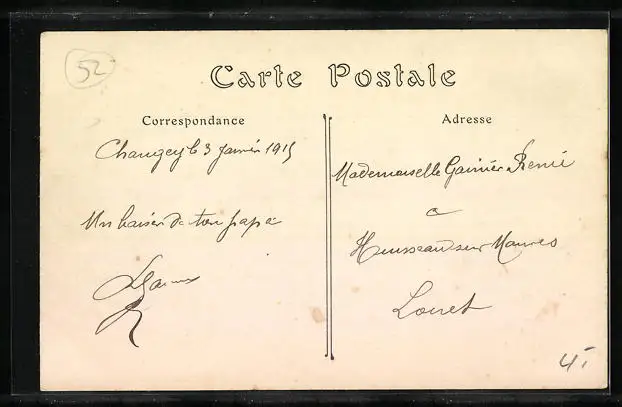 52
Carte Postale
Correspondance
Changey le 3 Janvier 1915
Un baiser de ton papa
Adresse
Mademoiselle Garnier Renée
a
Huisseau sur Mauves
Loiret
4,-